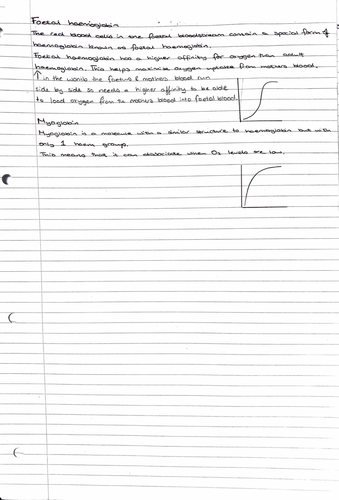 Foetal haemoglobin
The red blood cells in the foetal bloodstream contain a special form of
haemoglobin known as foetal haemoglobin.
Foetal haemoglobin has a higher affinity for oxygen than adult
haemoglobin. This helps maximise oxygen uptake from mothers blood.
↑ in the womb the foetus & mothers blood run
side by side so needs a higher affinity to be able
to load oxygen from the mothers blood into foetal blood.
Myoglobin
Myoglobin is a molecule with a similar structure to haemoglobin but with
only 1 haem group.
This means that it can dissociate when O₂ levels are low.